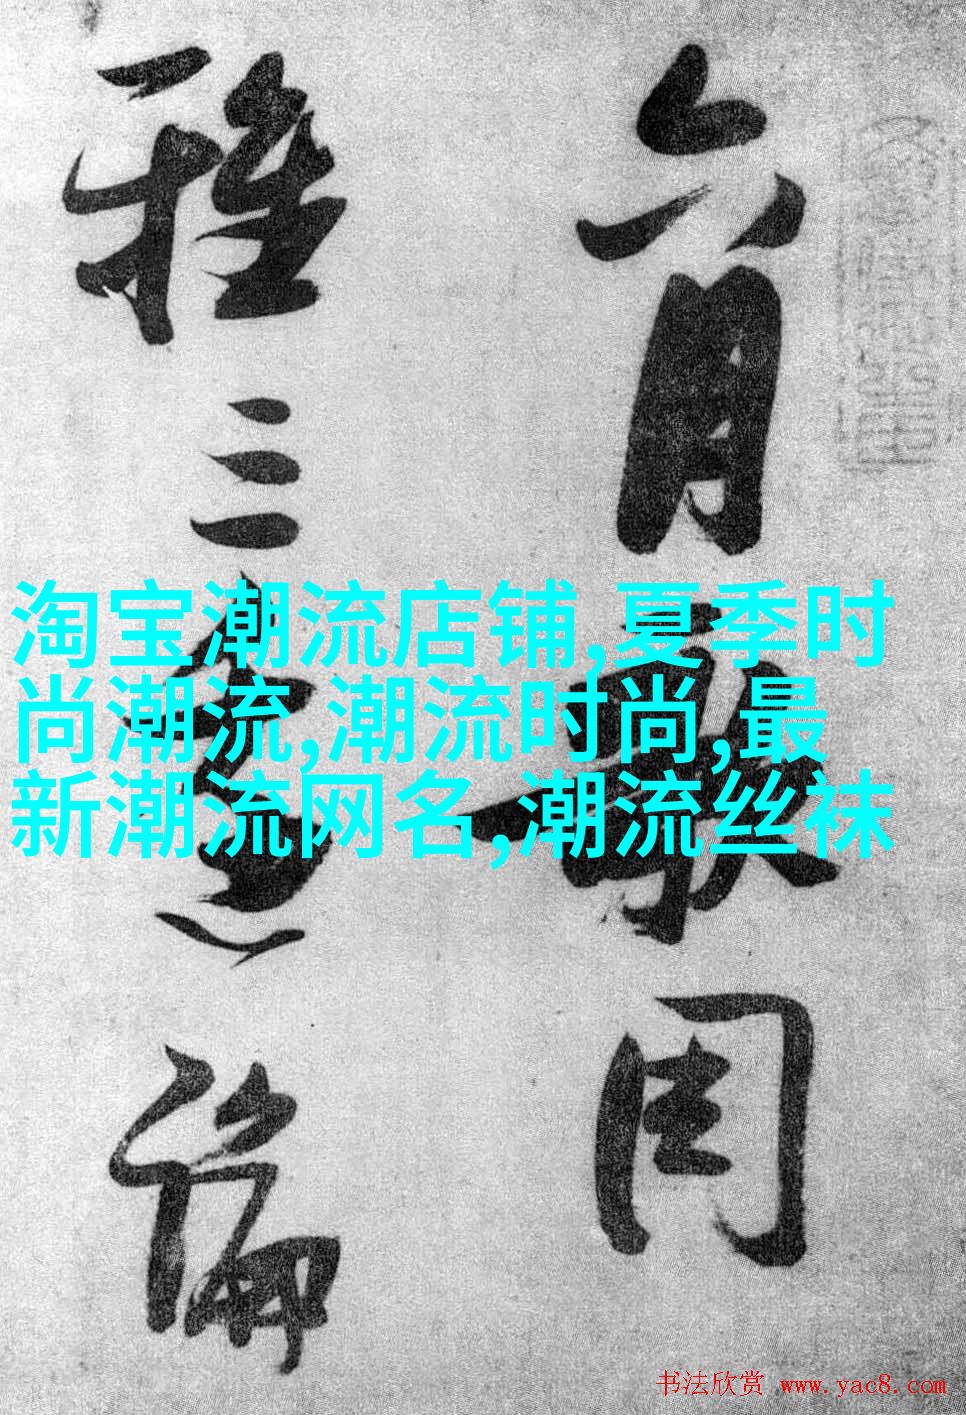 六月歌周
雅三
淘宝潮流店铺,夏季时
尚潮流,潮流时尚,最
新潮流网名,潮流丝袜
书法欣赏 www.yac8.com